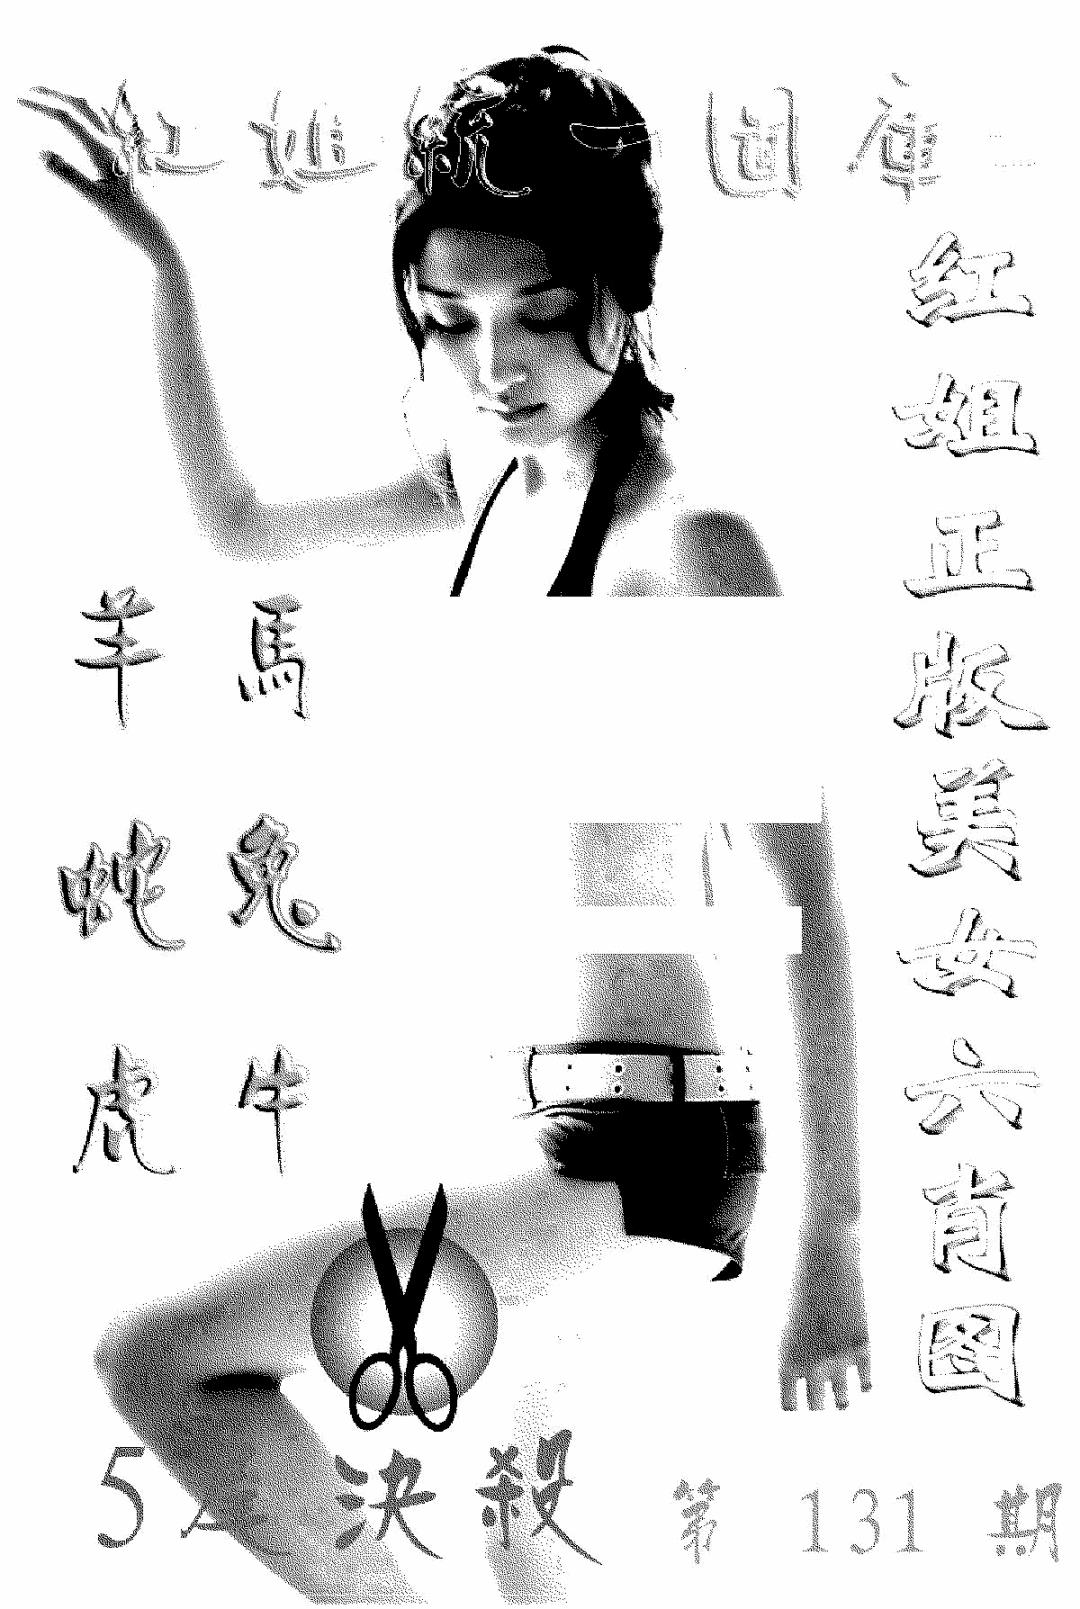 紅姐統一圖庫
紅姐正版美女六肖圖
羊 馬
蛇 兔
虎 牛
5 決殺
第131期